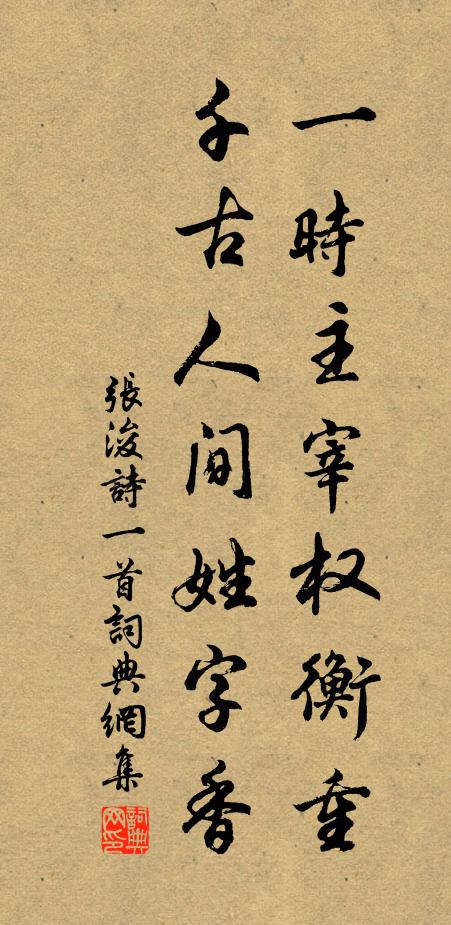 一時主宰权衡重
千古人间姓字香
張浚詩一首詞典網集
詞典网印